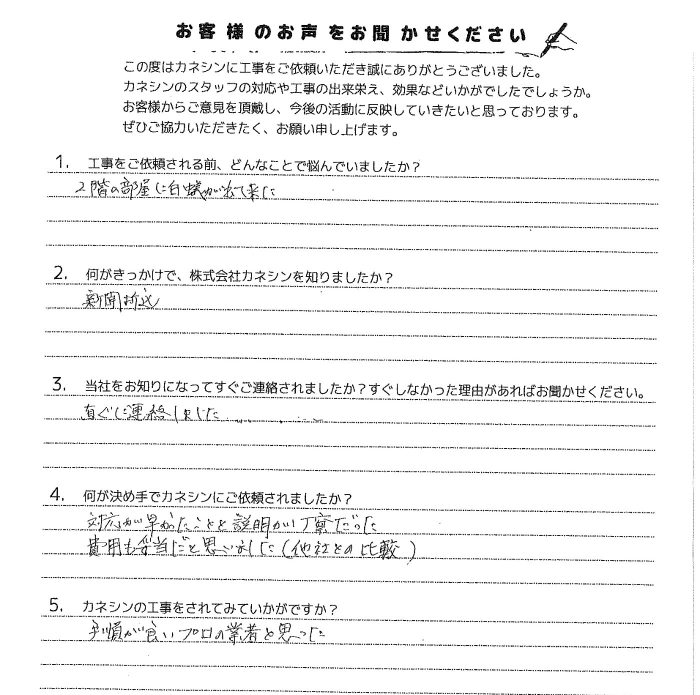 お客様のお声をお聞かせください
この度はカネシンに工事をご依頼いただき誠にありがとうございました。
カネシンのスタッフの対応や工事の出来栄え、効果などいかがでしたでしょうか。
お客様からご意見を頂戴し、今後の活動に反映していきたいと思っております。
ぜひご協力いただきたく、お願い申し上げます。
1. 工事をご依頼される前、どんなことで悩んでいましたか？
2階の部屋に白蟻が出て来た
2. 何がきっかけで、株式会社カネシンを知りましたか？
新聞折込
3. 当社をお知りになってすぐご連絡されましたか？すぐしなかった理由があればお聞かせください。
直ぐに連絡しました
4. 何が決め手でカネシンにご依頼されましたか？
対応が早かったことと説明が丁寧だった
費用も妥当だと思いました（他社との比較）
5. カネシンの工事をされてみていかがですか？
手順が良いプロの業者と思った